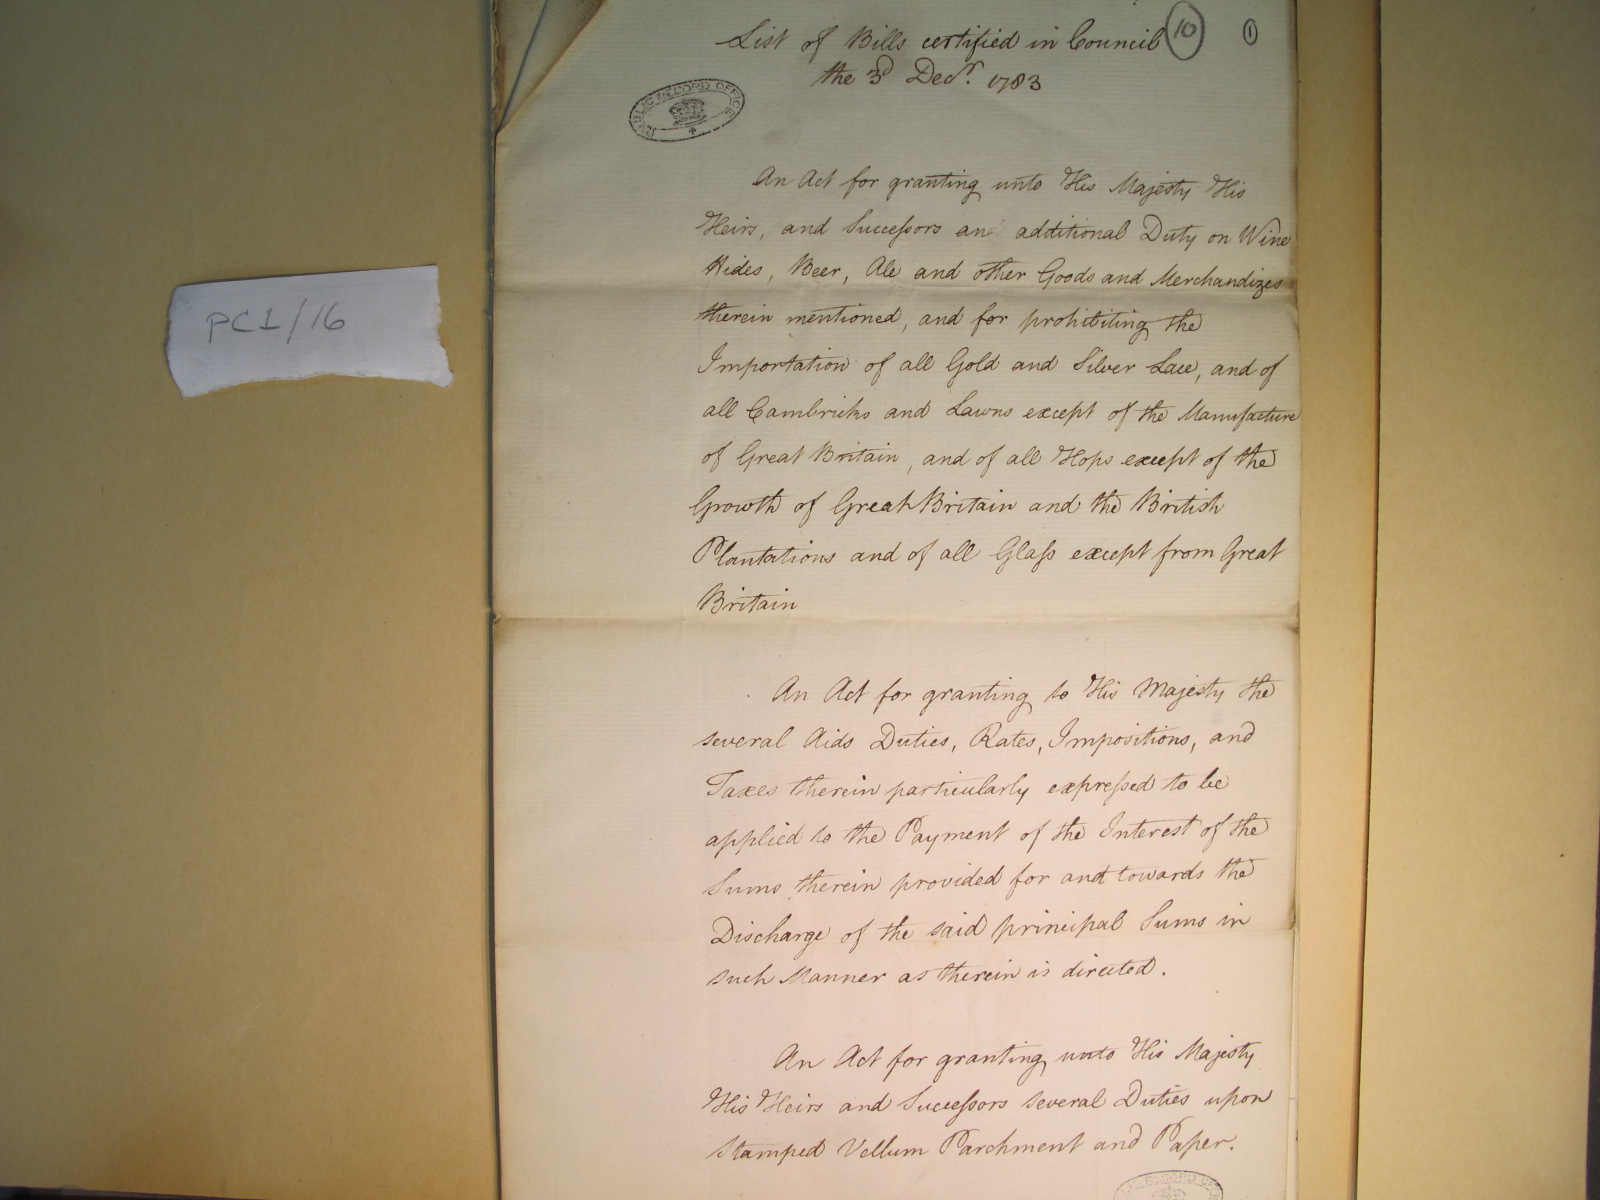 List of Bills certified in Council
10
1
the 3d Decr. 1783
PUBLIC RECORD OFFICE
An Act for granting unto His Majesty His
Heirs, and Successors an additional Duty on Wine
Hides, Beer, Ale and other Goods and Merchandizes
PC1/16
therein mentioned, and for prohibiting the
Importation of all Gold and Silver Lace, and of
all Cambricks and Lawns except of the Manufacture
of Great Britain, and of all Hops except of the
Growth of Great Britain and the British
Plantations and of all Glass except from Great
Britain
An Act for granting to His Majesty the
several Aids Duties, Rates, Impositions, and
Taxes therein particularly expressed to be
applied to the Payment of the Interest of the
Sums therein provided for and towards the
Discharge of the said principal Sums in
such Manner as therein is directed.
An Act for granting unto His Majesty
His Heirs and Successors several Duties upon
Stamped Vellum Parchment and Paper.
PUBLIC RECORD OFFICE